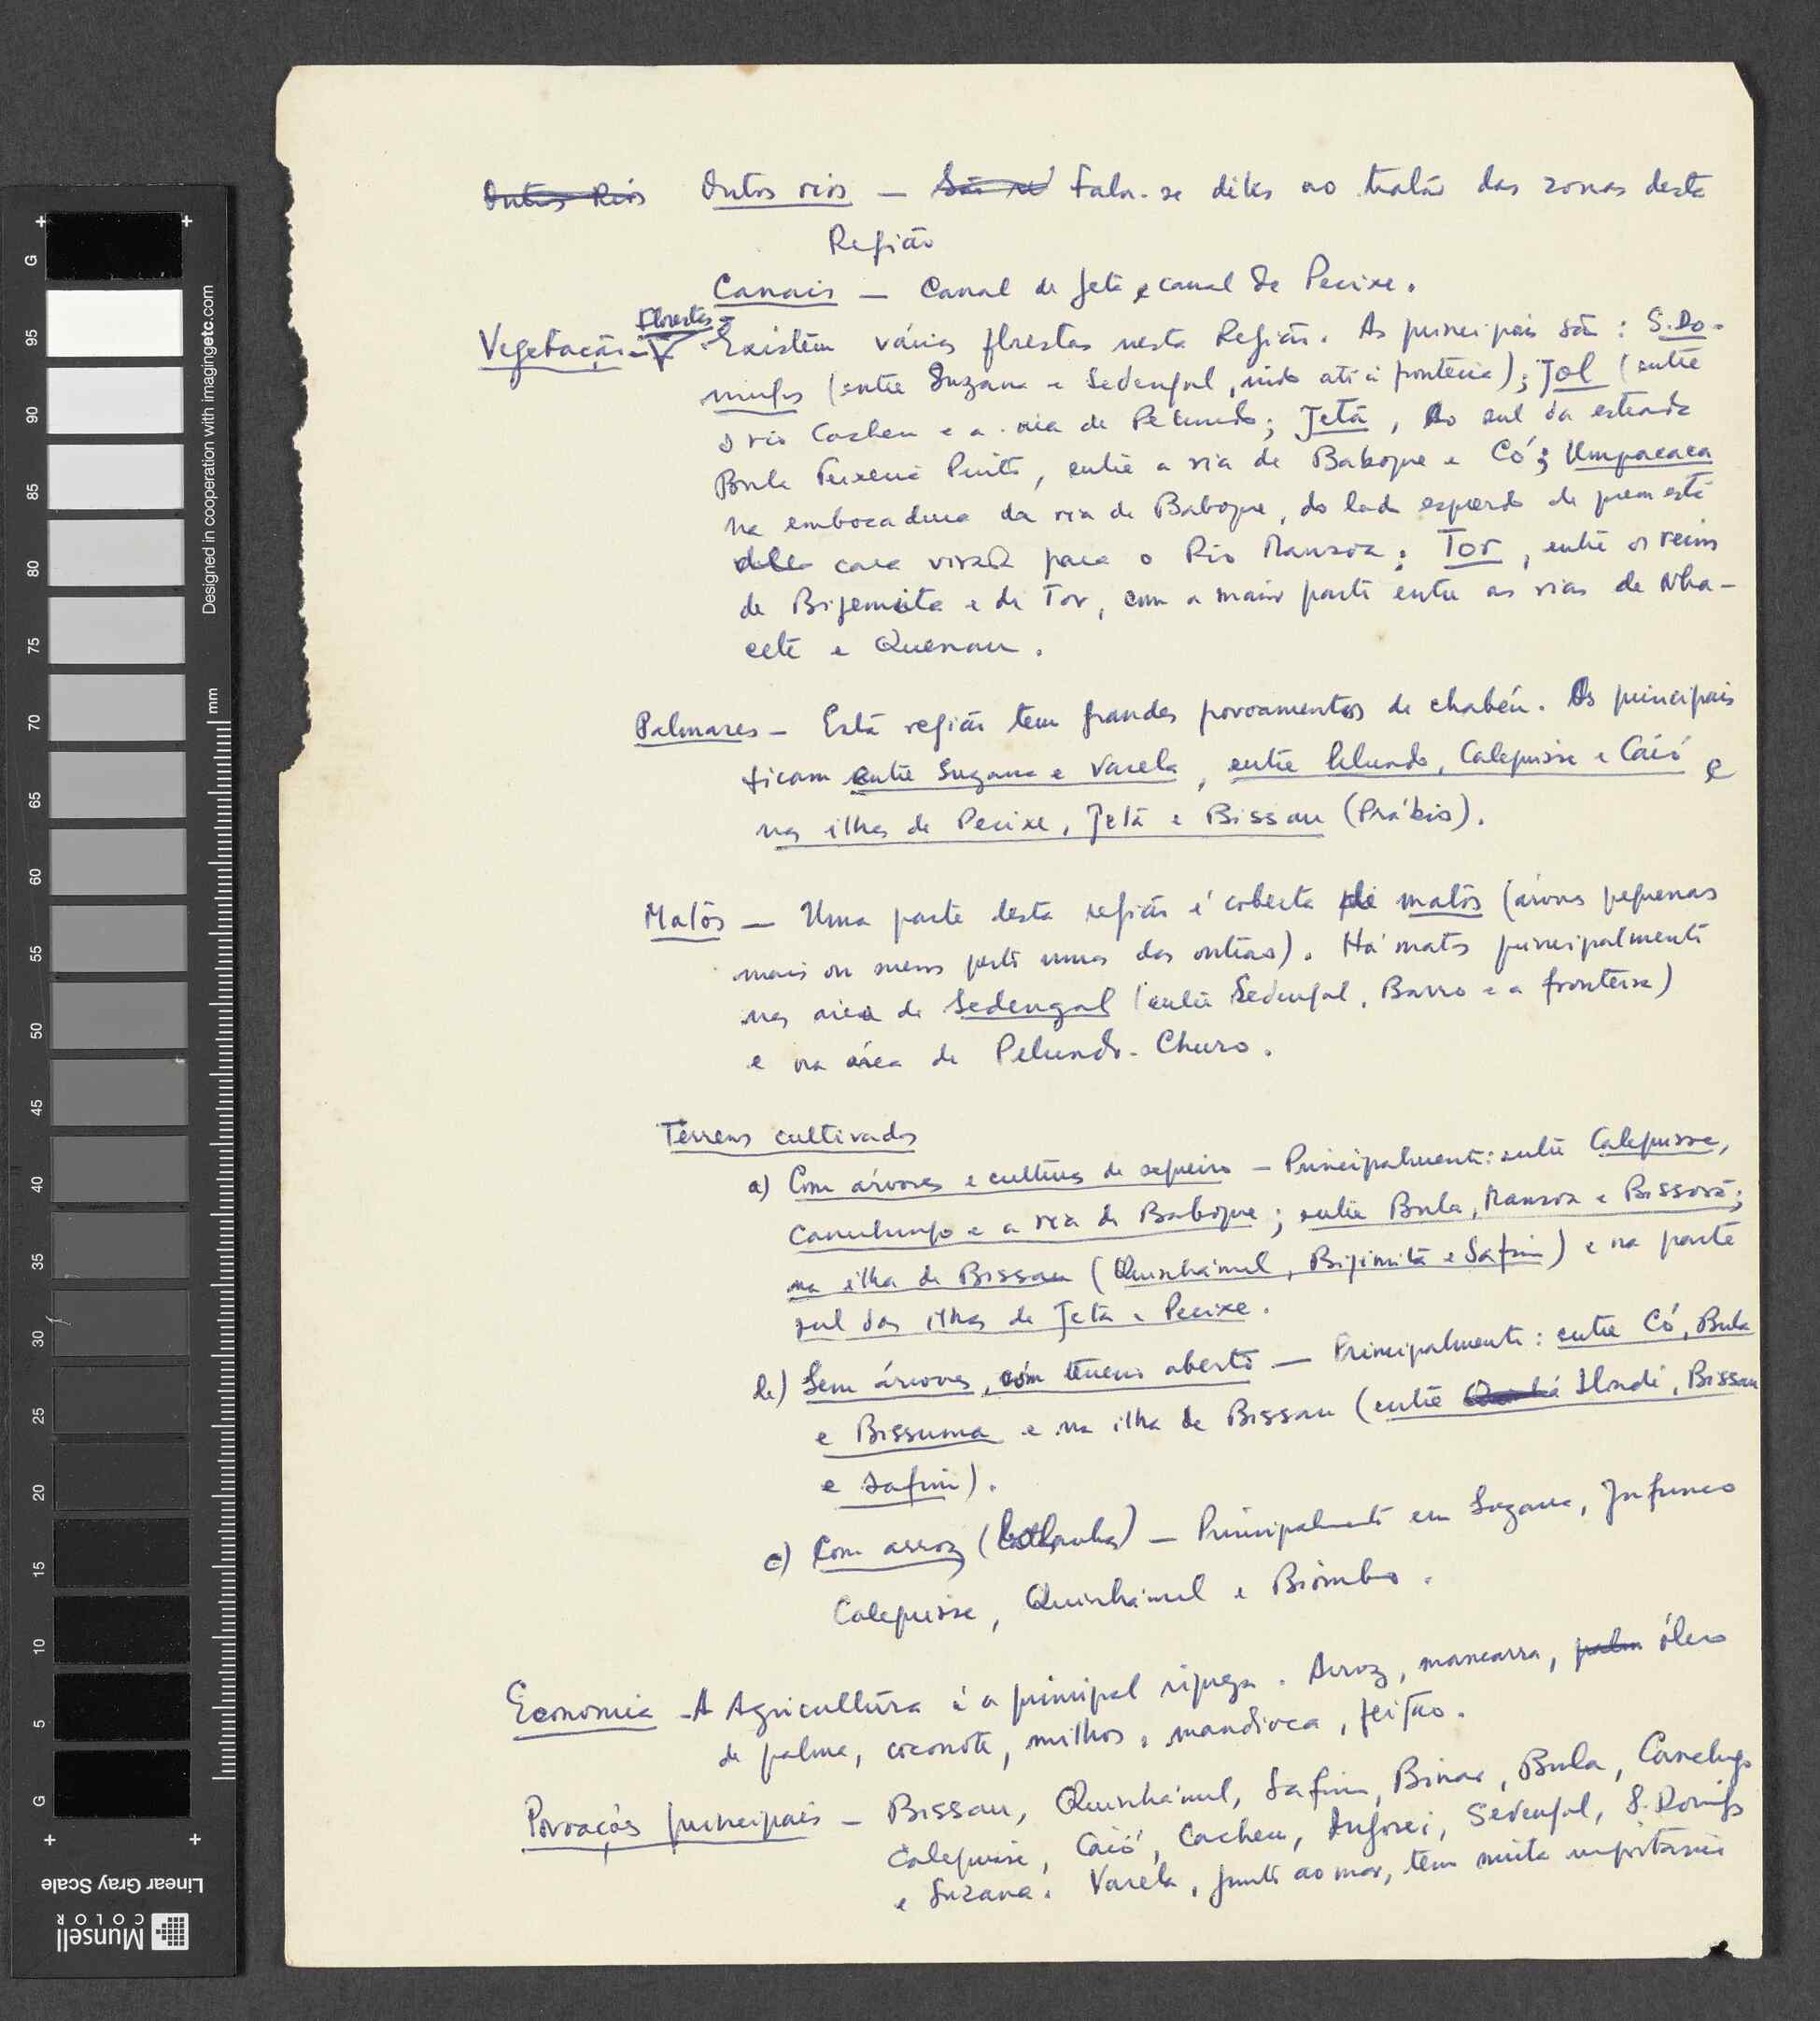 Outros Rios Outros rios — São re Fala-se deles ao tratar das zonas desta
Região
Canais — Canal de Jeta e canal de Pecixe.
Florestas -
Vegetação - Existem várias florestas nesta Região. As principais são: S. Do-
mingos (entre Suzana e Sedengal, indo até à fronteira); Jol (entre
o rio Cacheu e a ria de Pelundo; Jetá, Ao sul da estrada
Bula Teixeira Pinto, entre a ria de Baboque e Có; Umpacaca
na embocadura da ria de Baboque, do lado esquerdo de quem está
cara virada para o Rio Mansoa; Tor, entre os reinos
de Bijemita e de Tor, com a maior parte entre as rias de Nha-
cete e Quenau.
Palmares — Esta região tem grandes povoamentos de chabéu. Os principais
ficam entre Suzana e Varela, entre Pelundo, Calequisse e Caió e
nas ilhas de Pecixe, Jetá e Bissau (Prábis).
Matos — Uma parte desta região é coberta de matos (árvores pequenas
mais ou menos perto umas das outras). Há matos principalmente
na área de Sedengal (entre Sedengal, Barro e a fronteira)
e na área de Pelundo-Churo.
Terrenos cultivados
a) Com árvores e culturas de sequeiro — Principalmente: entre Calequisse,
Canchungo e a ria de Baboque; entre Bula, Mansoa e Bissorã;
na ilha de Bissau (Quinhámel, Bijimita e Safim) e na parte
sul das ilhas de Jetá e Pecixe.
b) Sem árvores, com terreno aberto — Principalmente: entre Có, Bula
e Bissuma e na ilha de Bissau (entre Ilondé, Bissau
e Safim).
c) Com arroz (bolanhas) — Principalmente em Suzana, Jufunco
Calequisse, Quinhámel e Biombo.
Economia - A Agricultura é a principal riqueza. Arroz, mancarra, palm óleo
de palma, coconote, milhos, mandioca, feijão.
Povoações principais — Bissau, Quinhámel, Safim, Binar, Bula, Canchungo
Calequisse, Caió, Cacheu, Ingorei, Sedengal, S. Domingos
e Suzana. Varela, junto ao mar, tem muita importância
G 95 90 85 80 75 70 65 60 55 50 45 40 35 30 25 20 15 10 5 G
Designed in cooperation with imagingetc.com
mm
Linear Gray Scale
Munsell
COLOR